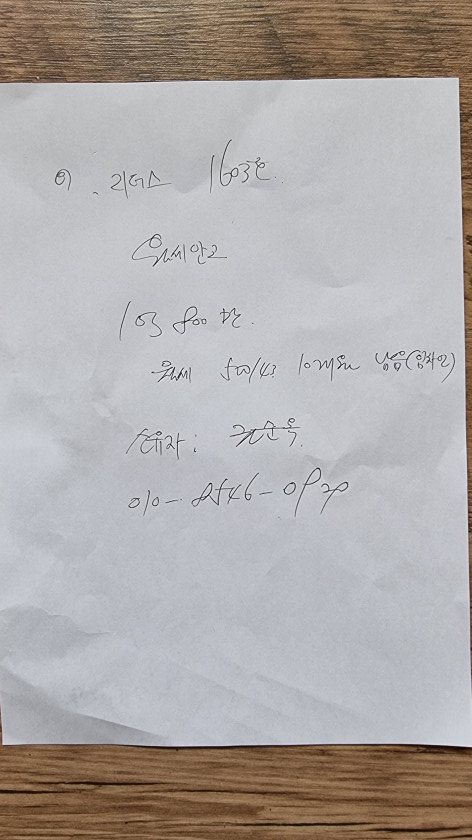 리더스 1603호.
월세안고
1억 800만.
월세 500/43 10개월 남음(임차인)
소유자:
010-8546-0920